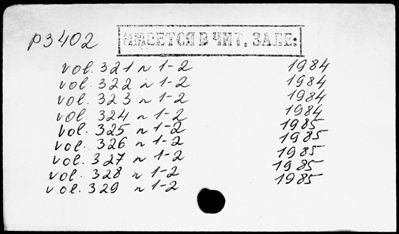 P3402
ИМЕЕТСЯ В ЧИТ. ЗАЛЕ:
vol. 321 n 1-2 1984
vol. 322 n 1-2 1984
vol. 323 n 1-2 1984
vol. 324 n 1-2 1984
vol. 325 n 1-2 1985
vol. 326 n 1-2 1985
vol. 327 n 1-2 1985
vol. 328 n 1-2 1985
vol. 329 n 1-2 1985